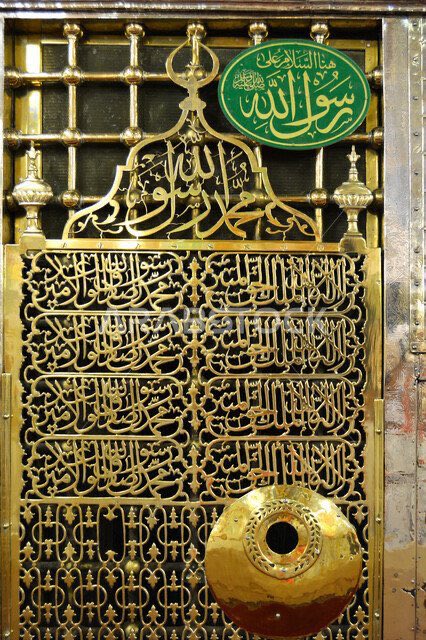 هنا السلام على
رسول الله
صلى الله عليه وسلم
محمد رسول الله
لا إله إلا الله الملك الحق المبين محمد رسول الله الصادق الوعد الأمين
لا إله إلا الله الملك الحق المبين محمد رسول الله الصادق الوعد الأمين
لا إله إلا الله الملك الحق المبين محمد رسول الله الصادق الوعد الأمين
لا إله إلا الله الملك الحق المبين محمد رسول الله الصادق الوعد الأمين
ARABSTOCK